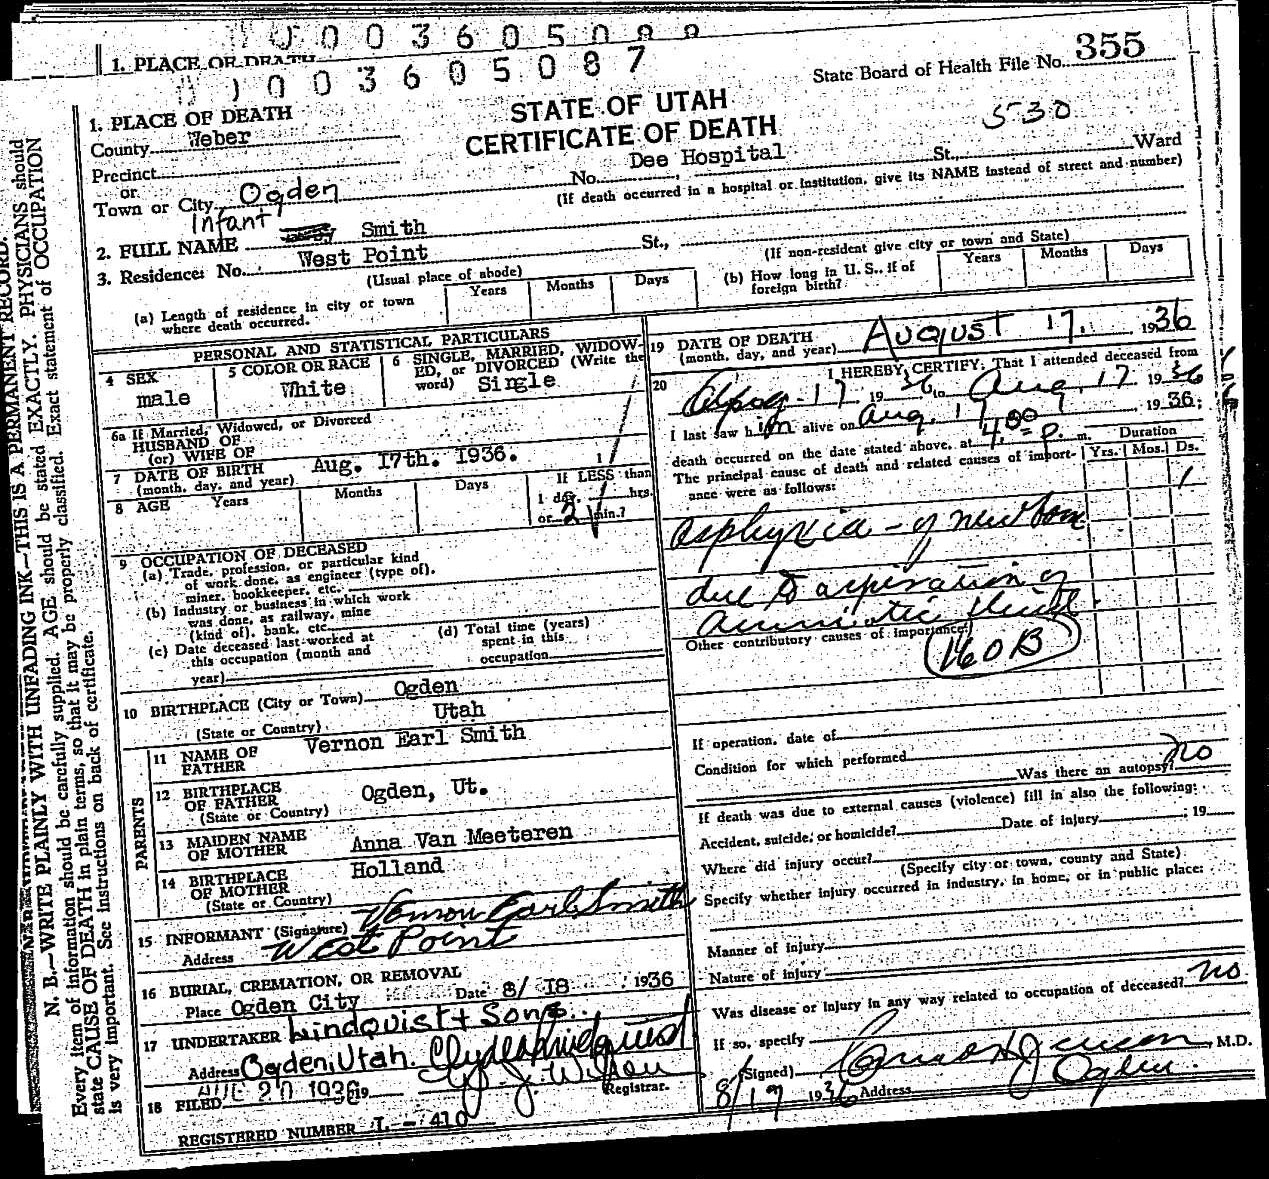 0 0 0 3 6 0 5 0 8 8
1. PLACE OF DEATH
0 0 3 6 0 5 0 8 7
State Board of Health File No. 355
STATE OF UTAH
CERTIFICATE OF DEATH
530
1. PLACE OF DEATH
County Weber
Precinct
or
Town or City Ogden
No. Dee Hospital St., Ward
(If death occurred in a hospital or institution, give its NAME instead of street and number)
Infant
2. FULL NAME Smith
3. Residence: No. West Point St.,
(Usual place of abode)
(If non-resident give city or town and State)
(a) Length of residence in city or town where death occurred.
Years Months Days
(b) How long in U. S., if of foreign birth?
Years Months Days
PERSONAL AND STATISTICAL PARTICULARS
4 SEX
male
5 COLOR OR RACE
White
6 SINGLE, MARRIED, WIDOW-
ED, or DIVORCED (Write the
word) Single
6a If Married, Widowed, or Divorced
HUSBAND OF
(or) WIFE OF
7 DATE OF BIRTH
(month, day, and year) Aug. 17th. 1936.
8 AGE Years Months Days
If LESS than
1 day, hrs.
or 21 min.?
9 OCCUPATION OF DECEASED
(a) Trade, profession, or particular kind
of work done, as engineer (type of),
miner, bookkeeper, etc.
(b) Industry or business in which work
was done, as railway, mine
(kind of), bank, etc
(c) Date deceased last worked at
this occupation (month and
year)
(d) Total time (years)
spent in this
occupation
10 BIRTHPLACE (City or Town) Ogden
(State or Country) Utah
PARENTS
11 NAME OF
FATHER Vernon Earl Smith
12 BIRTHPLACE
OF FATHER Ogden, Ut.
(State or Country)
13 MAIDEN NAME
OF MOTHER Anna Van Meeteren
14 BIRTHPLACE
OF MOTHER Holland
(State or Country)
15 INFORMANT (Signature) Vernon Earl Smith
Address West Point
16 BURIAL, CREMATION, OR REMOVAL
Place Ogden City Date 8/18 1936
17 UNDERTAKER Lindquist & Sons.
Address Ogden, Utah. Clyde Lindquist
18 FILED AUG 20 1936 19
W. J. Wilson
Registrar.
REGISTERED NUMBER I - 410
19 DATE OF DEATH
(month, day, and year) August 17, 1936
20 I HEREBY CERTIFY, That I attended deceased from
Aug - 17 1936 to Aug. 17 1936
I last saw him alive on Aug. 17, 1936;
death occurred on the date stated above, at 4:00 p. m.
The principal cause of death and related causes of import-
ance were as follows:
Duration
Yrs. Mos. Ds.
1
asphyxia - of newborn
due to aspiration of
amniotic fluid.
Other contributory causes of importance:
160B
If operation, date of
Condition for which performed
Was there an autopsy? no
If death was due to external causes (violence) fill in also the following:
Accident, suicide, or homicide? Date of injury 19
Where did injury occur?
(Specify city or town, county and State)
Specify whether injury occurred in industry, in home, or in public place:
Manner of injury
Nature of injury
Was disease or injury in any way related to occupation of deceased? no
If so, specify
(Signed) Conrad H Jenson, M.D.
8/19 1936 Address Ogden.
N. B.—WRITE PLAINLY WITH UNFADING INK—THIS IS A PERMANENT RECORD.
Every item of information should be carefully supplied. AGE should be stated EXACTLY. PHYSICIANS should
state CAUSE OF DEATH in plain terms, so that it may be properly classified. Exact statement of OCCUPATION
is very important. See instructions on back of certificate.